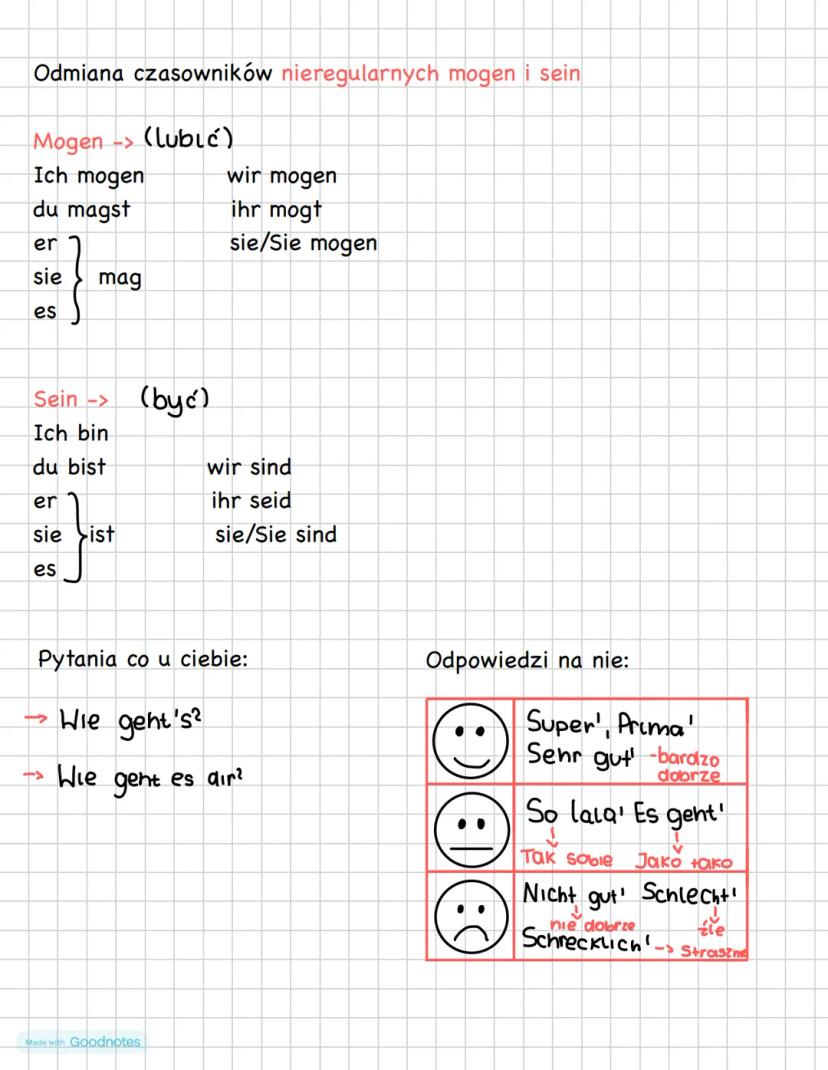 Odmiana czasowników nieregularnych mogen i sein
Mogen -> (lubić)
Ich mogen wir mogen
du magst ihr mogt
er sie/Sie mogen
sie mag
es
Sein -> (być)
Ich bin
du bist wir sind
er ihr seid
sie ist sie/Sie sind
es
Pytania co u ciebie:
→ Wie geht's?
→ Wie geht es dir?
Odpowiedzi na nie:
Super!, Prima!
Sehr gut! -bardzo
dobrze
So lala! Es geht!
Tak sobie Jako tako
Nicht gut! Schlecht!
nie dobrze źle
Schrecklich! -> Straszne
Made with Goodnotes